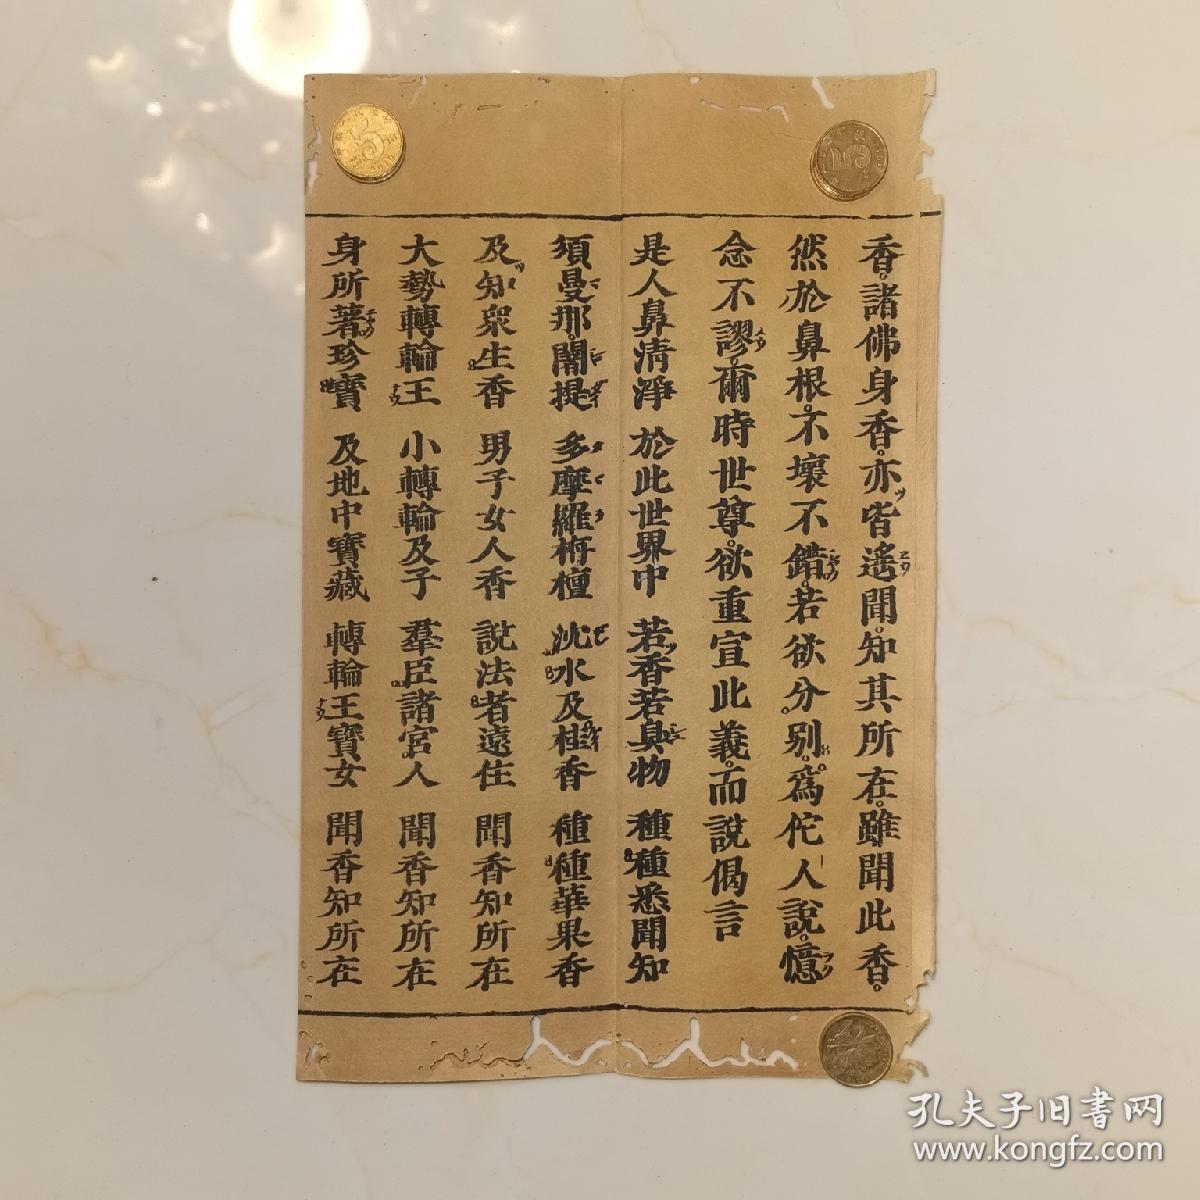 香。諸佛身香。亦皆遙聞。知其所在。雖聞此香。
然於鼻根。不壞不錯。若欲分別。為佗人說。憶
念不謬。爾時世尊。欲重宣此義。而說偈言
是人鼻清淨　於此世界中　若香若臭物　種種悉聞知
須曼那闍提　多摩羅栴檀　沈水及桂香　種種華果香
及知眾生香　男子女人香　說法者遠住　聞香知所在
大勢轉輪王　小轉輪及子　羣臣諸宮人　聞香知所在
身所著珍寶　及地中寶藏　轉輪王寶女　聞香知所在
孔夫子旧书网
www.kongfz.com